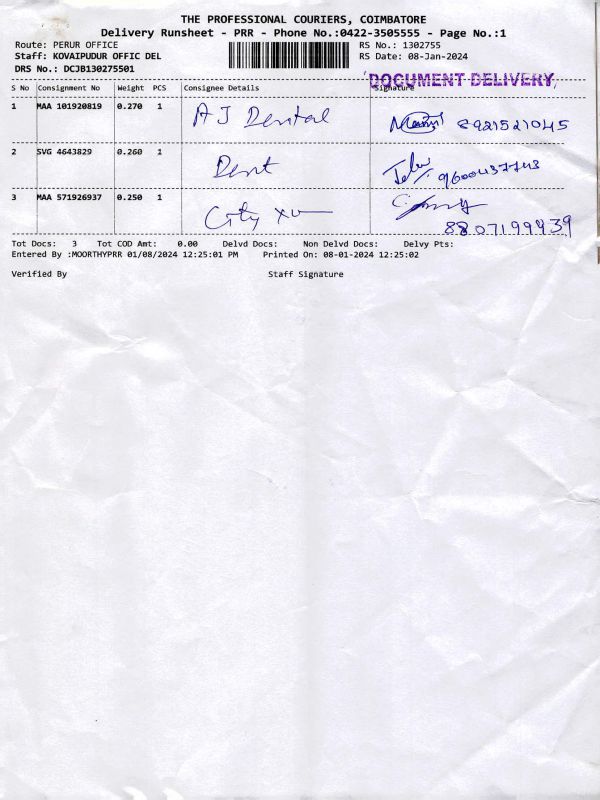 THE PROFESSIONAL COURIERS, COIMBATORE
Delivery Runsheet - PRR - Phone No.:0422-3505555 - Page No.:1
Route: PERUR OFFICE RS No.: 1302755
Staff: KOVAIPUDUR OFFIC DEL RS Date: 08-Jan-2024
DRS No.: DCJB130275501
DOCUMENT DELIVERY
S No Consignment No Weight PCS Consignee Details Signature
1 MAA 101920819 0.270 1 A J Dental 8921521045
2 SVG 4643829 0.260 1 Dent 9600437743
3 MAA 571926937 0.250 1 City 8807199439
Tot Docs: 3 Tot COD Amt: 0.00 Delvd Docs: Non Delvd Docs: Delvy Pts:
Entered By :MOORTHYPRR 01/08/2024 12:25:01 PM Printed On: 08-01-2024 12:25:02
Verified By Staff Signature